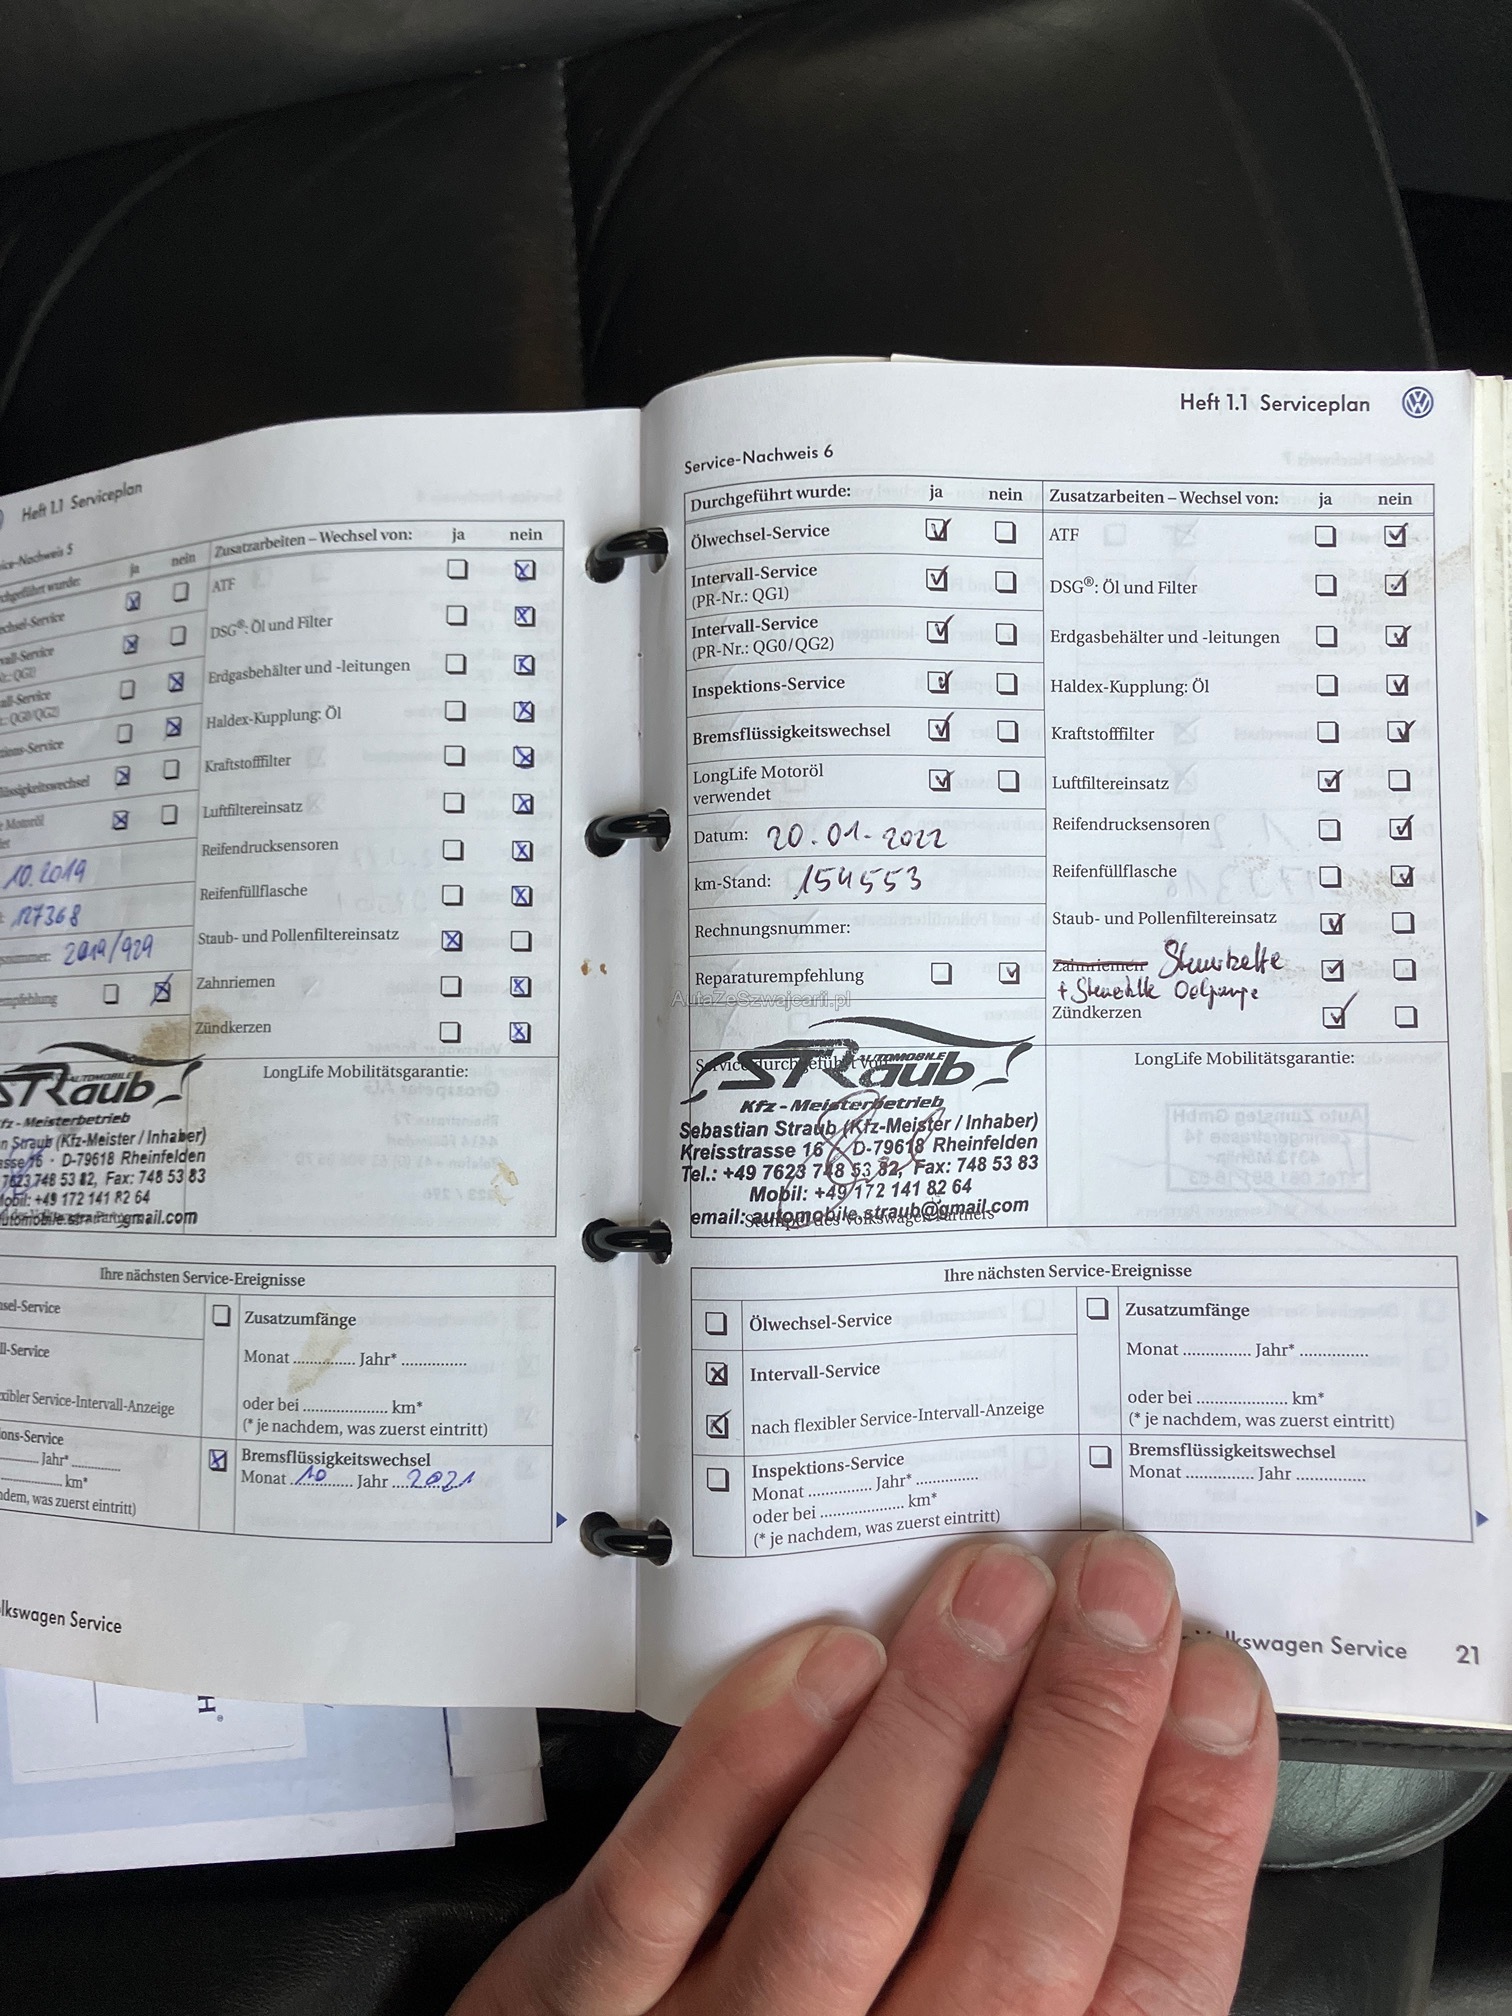 Heft 1.1 Serviceplan
ja
nein
Zusatzarbeiten – Wechsel von:
ja
nein
ATF
DSG®: Öl und Filter
Erdgasbehälter und -leitungen
Haldex-Kupplung: Öl
Kraftstofffilter
Luftfiltereinsatz
Reifendrucksensoren
Reifenfüllflasche
Staub- und Pollenfiltereinsatz
Zahnriemen
Zündkerzen
10.2019
127368
2019/929
LongLife Mobilitätsgarantie:
STRaub
AUTOMOBILE
fz - Meisterbetrieb
n Straub (Kfz-Meister / Inhaber)
asse 16 · D-79618 Rheinfelden
7623 748 53 82, Fax: 748 53 83
Mobil: +49 172 141 82 64
Ihre nächsten Service-Ereignisse
sel-Service
ll-Service
xibler Service-Intervall-Anzeige
ons-Service
Jahr*
km*
dem, was zuerst eintritt)
Zusatzumfänge
Monat .............. Jahr* ..............
oder bei .................... km*
(* je nachdem, was zuerst eintritt)
Bremsflüssigkeitswechsel
Monat 10 Jahr 2021
lkswagen Service
Heft 1.1 Serviceplan
Service-Nachweis 6
Durchgeführt wurde:
ja
nein
Zusatzarbeiten – Wechsel von:
ja
nein
Ölwechsel-Service
Intervall-Service
(PR-Nr.: QG1)
Intervall-Service
(PR-Nr.: QG0/QG2)
Inspektions-Service
Bremsflüssigkeitswechsel
LongLife Motoröl
verwendet
Datum: 20.01.2022
km-Stand: 154553
Rechnungsnummer:
Reparaturempfehlung
ATF
DSG®: Öl und Filter
Erdgasbehälter und -leitungen
Haldex-Kupplung: Öl
Kraftstofffilter
Luftfiltereinsatz
Reifendrucksensoren
Reifenfüllflasche
Staub- und Pollenfiltereinsatz
Zahnriemen Steuerkette
Zündkerzen
AutaZeSzwajcarii.pl
Service durchgeführt von:
STRaub
AUTOMOBILE
Kfz - Meisterbetrieb
Sebastian Straub (Kfz-Meister / Inhaber)
Kreisstrasse 16 D-79618 Rheinfelden
Tel.: +49 7623 748 53 82, Fax: 748 53 83
Mobil: +49 172 141 82 64
email: automobile.straub@gmail.com
Stempel des Volkswagen Partners
LongLife Mobilitätsgarantie:
Ihre nächsten Service-Ereignisse
Ölwechsel-Service
Intervall-Service
nach flexibler Service-Intervall-Anzeige
Inspektions-Service
Monat .............. Jahr* ..............
oder bei .................... km*
(* je nachdem, was zuerst eintritt)
Zusatzumfänge
Monat .............. Jahr* ..............
oder bei .................... km*
(* je nachdem, was zuerst eintritt)
Bremsflüssigkeitswechsel
Monat .............. Jahr ..............
kswagen Service 21